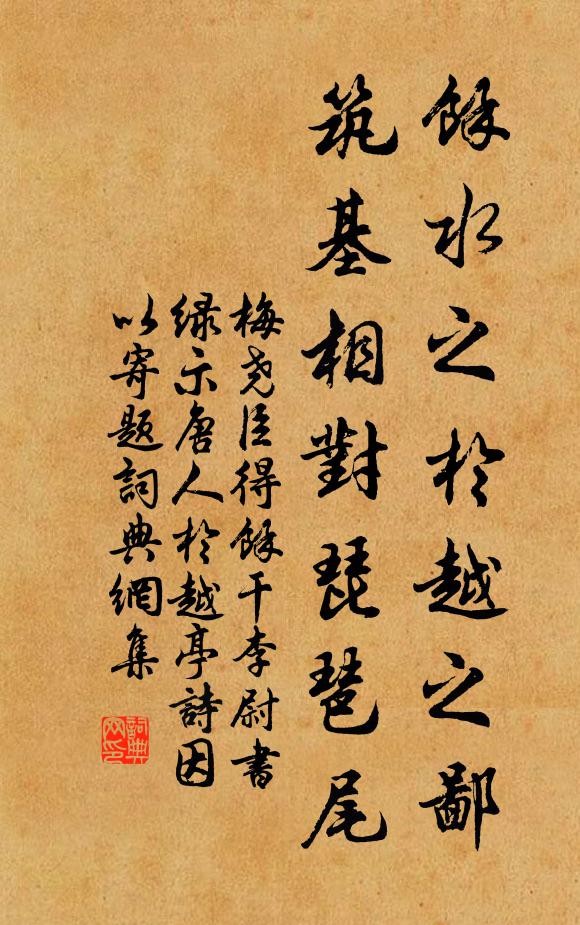 餘水之於越之鄙
筑基相對琵琶尾
梅尧臣得餘干李尉書
绿示唐人於越亭詩因
以寄题詞典網集
詞典網印